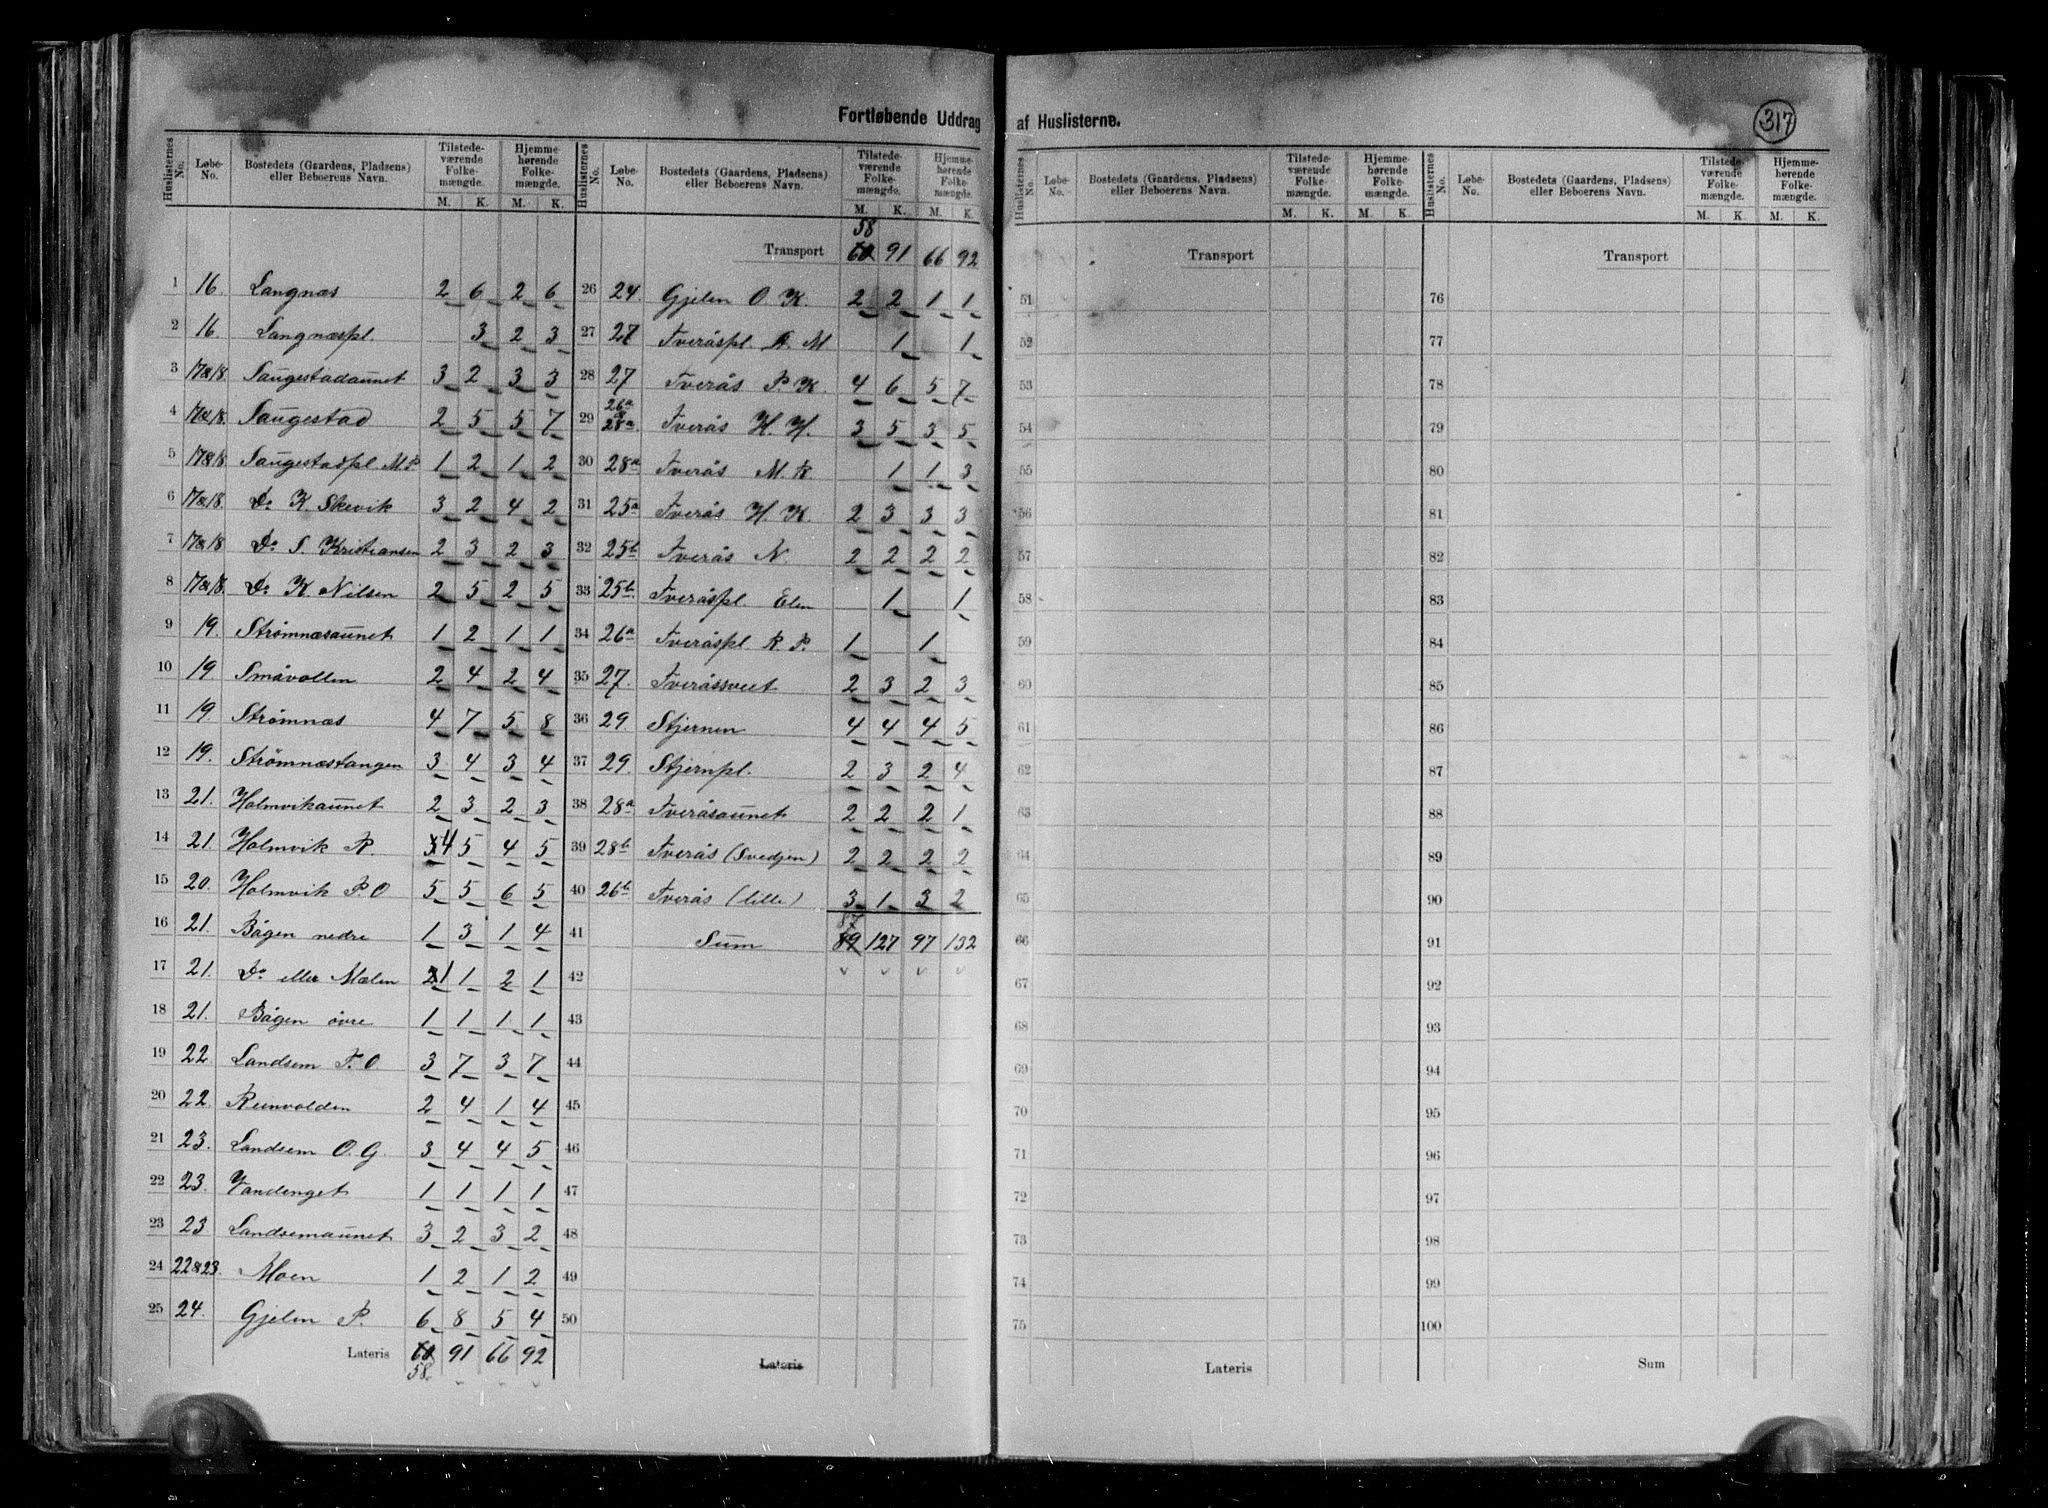 Fortløbende Uddrag af Huslisterne.
317
Huslisternes No. Løbe-No. Bostedets (Gaardens, Pladsens) eller Beboerens Navn. Tilstedeværende Folkemængde. M. K. Hjemmehørende Folkemængde. M. K.
1 16 Langnæs 2 6 2 6
2 16 Langnæspl. 3 2 3
3 17&18 Saugestadaunet 3 2 3 3
4 17&18 Saugestad 2 5 5 7
5 17&18 Saugestadpl M.P. 1 2 1 2
6 17&18 Do K. Skevik 3 2 4 2
7 17&18 Do S. Kristiansen 2 3 2 3
8 17&18 Do K. Nilsen 2 5 2 5
9 19. Strømnæsaunet 1 2 1 1
10 19 Småvollen 2 4 2 4
11 19. Strømnæs 4 7 5 8
12 19. Strømnæstangen 3 4 3 4
13 21. Holmvikaunet 2 3 2 3
14 21. Holmvik R. 4 5 4 5
15 20. Holmvik P.O 5 5 6 5
16 21. Bågen nedre 1 3 1 4
17 21. Do eller Mælen 1 1 2 1
18 21. Bågen øvre 1 1 1 1
19 22. Landsem T.O 3 7 3 7
20 22. Reinvolden 2 4 1 4
21 23. Landsem O.G. 3 4 4 5
22 23. Vandenget 1 1 1 1
23 23 Landsemaunet 3 2 3 2
24 22&23. Moen 1 2 1 2
25 24. Gjelen P. 6 8 5 4
Lateris 60 91 66 92
58.
Huslisternes No. Løbe-No. Bostedets (Gaardens, Pladsens) eller Beboerens Navn. Tilstedeværende Folkemængde. M. K. Hjemmehørende Folkemængde. M. K.
58
Transport 60 91 66 92
26 24. Gjelen O. K. 2 2 1 1
27 27 Tveråspl. A. M 1 1
28 27 Tverås P. K. 4 6 5 7
29 26a & 28a. Tverås H. H. 3 5 3 5
30 28a Tverås M. K. 1 1 3
31 25a Tverås H. K. 2 3 3 3
32 25b Tverås N. 2 2 2 2
33 25b. Tveråspl. Elen 1 1
34 26a Tveråspl. R. P. 1 1
35 27. Tveråssveet 2 3 2 3
36 29. Stjernen 4 4 4 5
37 29. Stjernpl. 2 3 2 4
38 28a Tveråsaunet 2 2 2 1
39 28b Tverås (Svedjen) 2 2 2 2
40 26b Tverås (lille) 3 1 3 2
87
41 Sum 89 127 97 132
42
43
44
45
46
47
48
49
50
Lateris
Huslisternes No. Løbe-No. Bostedets (Gaardens, Pladsens) eller Beboerens Navn. Tilstedeværende Folkemængde. M. K. Hjemmehørende Folkemængde. M. K.
Transport
51
52
53
54
55
56
57
58
59
60
61
62
63
64
65
66
67
68
69
70
71
72
73
74
75
Lateris
Huslisternes No. Løbe-No. Bostedets (Gaardens, Pladsens) eller Beboerens Navn. Tilstedeværende Folkemængde. M. K. Hjemmehørende Folkemængde. M. K.
Transport
76
77
78
79
80
81
82
83
84
85
86
87
88
89
90
91
92
93
94
95
96
97
98
99
100
Sum